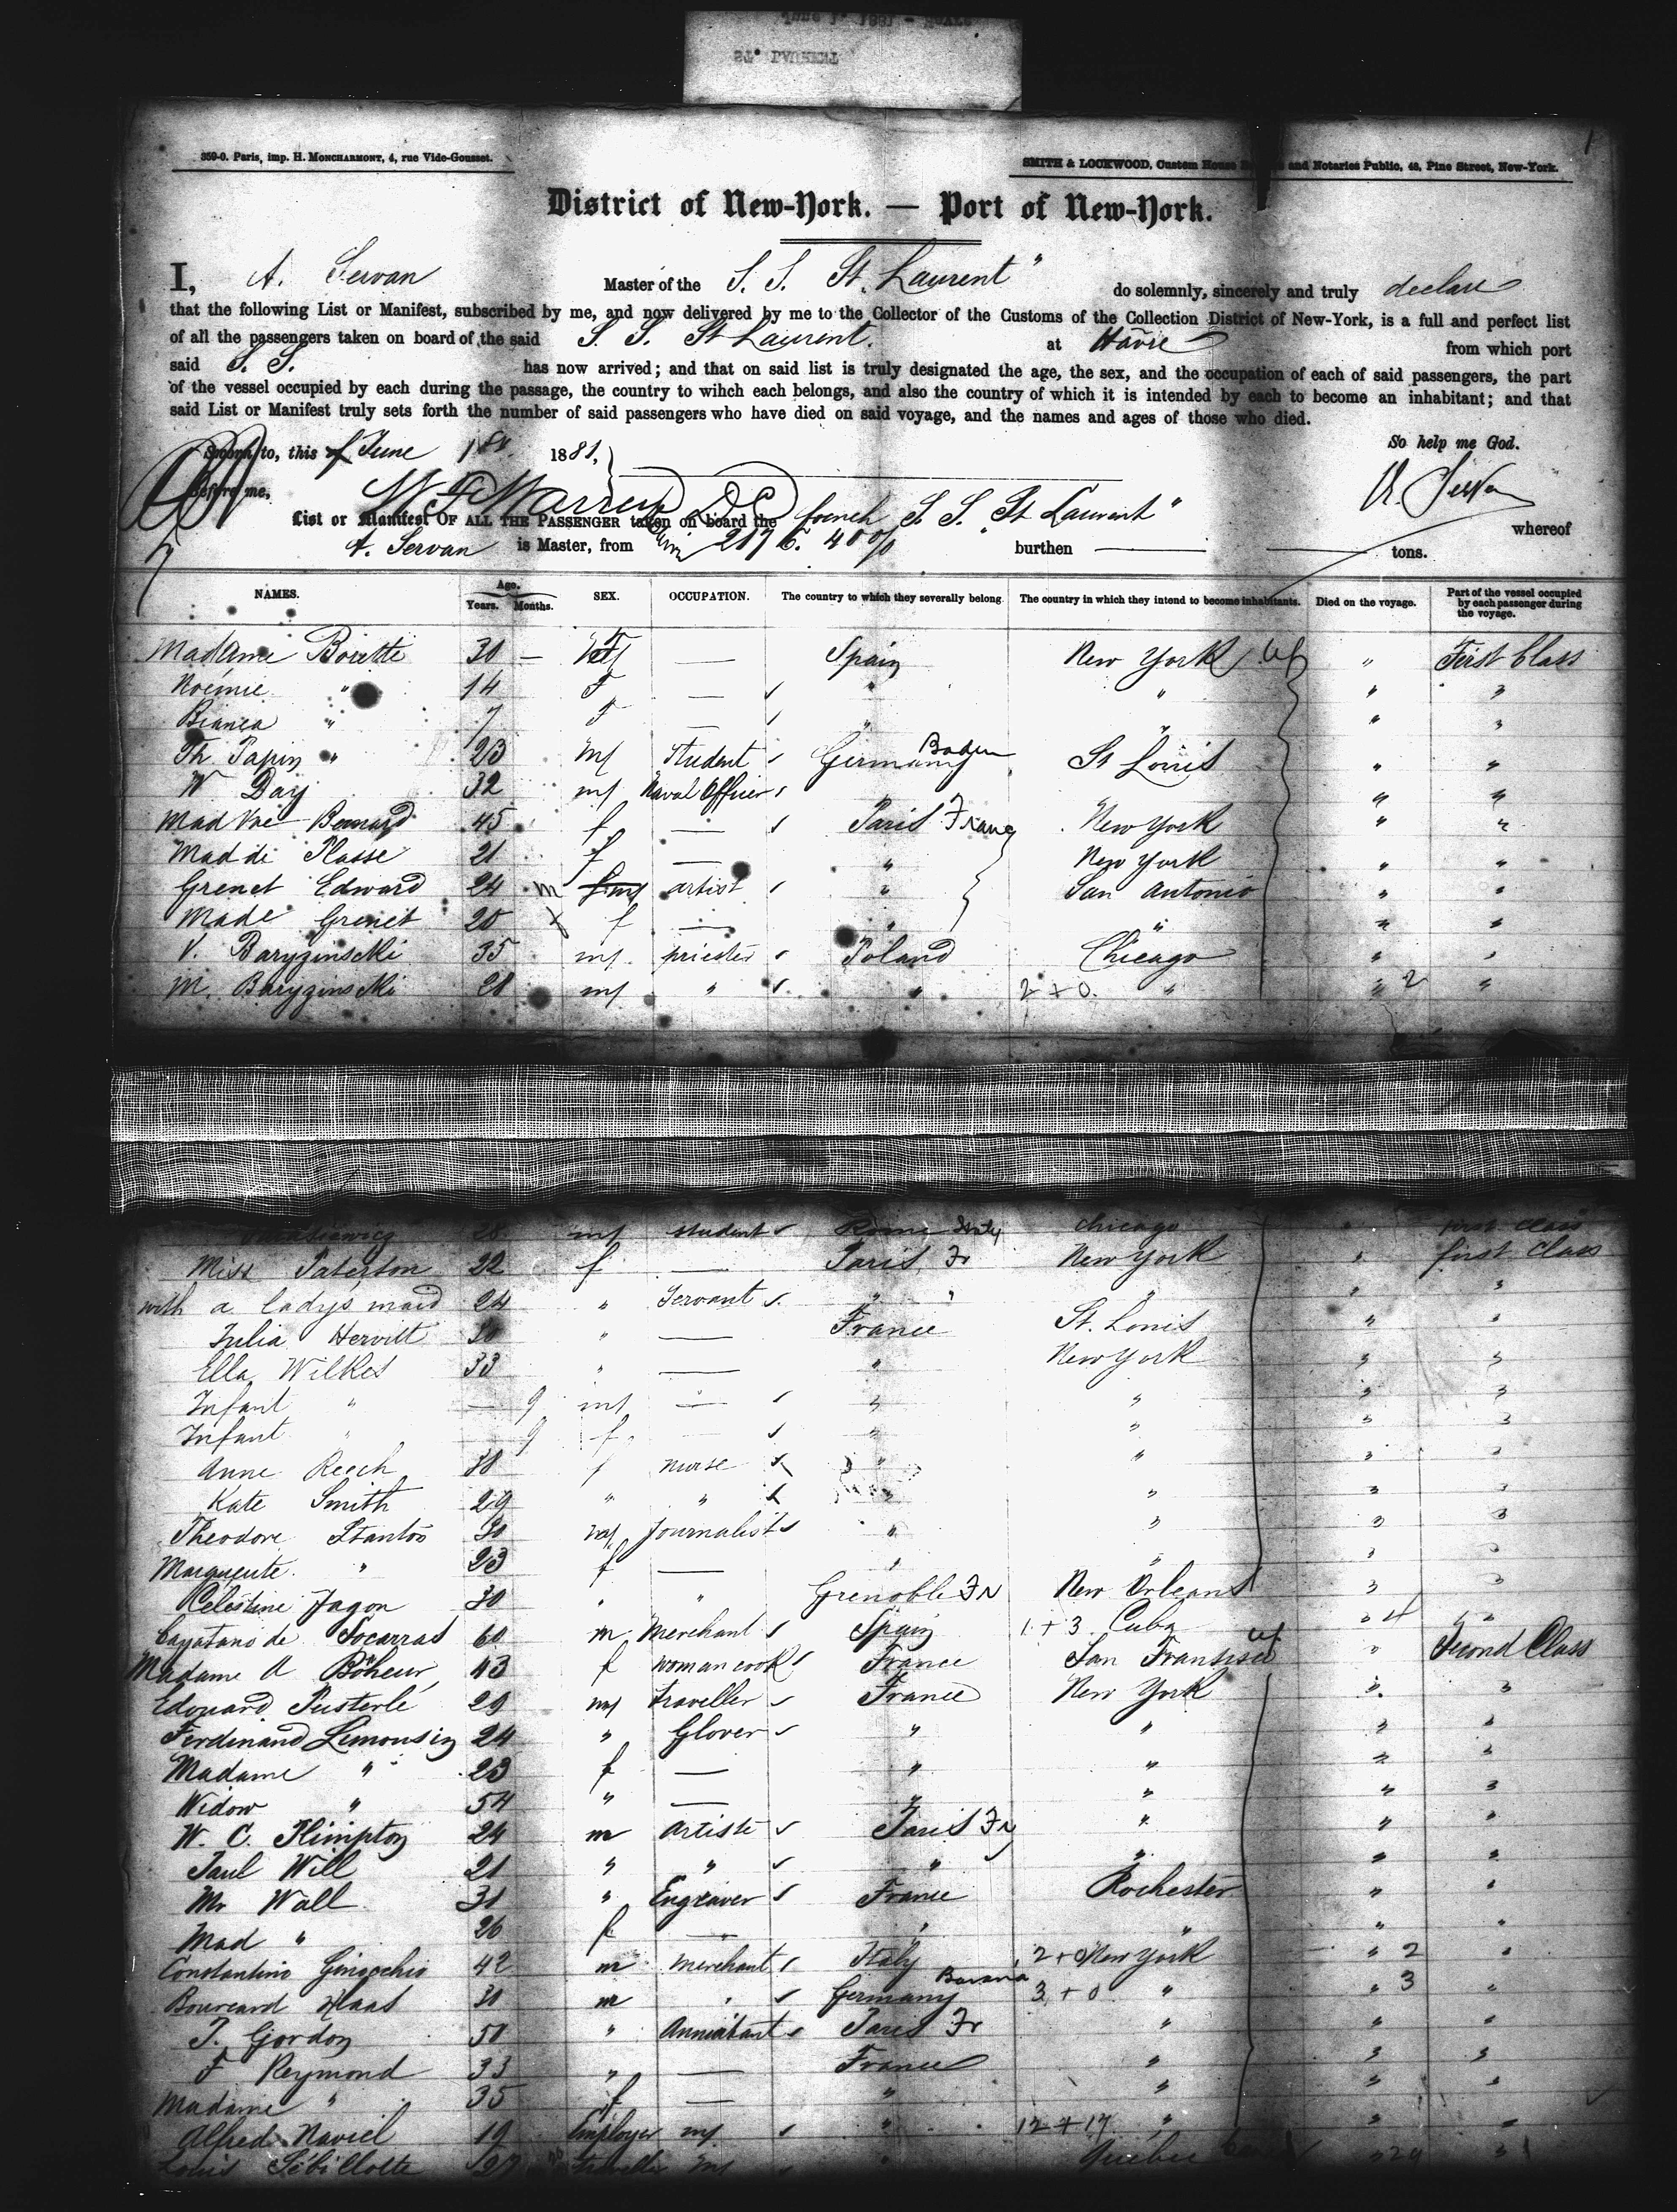 359-0. Paris, imp. H. MONCHARMONT, 4, rue Vide-Gousset.
SMITH & LOCKWOOD, Custom House and Notaries Public, 48, Pine Street, New-York.
1
District of New-York. — Port of New-York.
I, A. Servan Master of the S. S. St. Laurent" do solemnly, sincerely and truly declare
that the following List or Manifest, subscribed by me, and now delivered by me to the Collector of the Customs of the Collection District of New-York, is a full and perfect list
of all the passengers taken on board of the said S. S. St Laurent. at Havre from which port
said S. S. has now arrived; and that on said list is truly designated the age, the sex, and the occupation of each of said passengers, the part
of the vessel occupied by each during the passage, the country to wihch each belongs, and also the country of which it is intended by each to become an inhabitant; and that
said List or Manifest truly sets forth the number of said passengers who have died on said voyage, and the names and ages of those who died.
So help me God.
Sworn to, this June 1st 1881,
Before me,
List or Manifest OF ALL THE PASSENGER taken on board the french S. S. "St Laurent" whereof
A. Servan is Master, from burthen — tons.
NAMES. Age. Years. Months. SEX. OCCUPATION. The country to which they severally belong. The country in which they intend to become inhabitants. Died on the voyage. Part of the vessel occupied by each passenger during the voyage.
Madame 30 — F — Spain New York " First Class
Noémie " 14 F — " " " "
Bianca " 7 F — " " " "
Th. Papin " 23 m Student Germany Baden St Louis " "
W Day 32 m Naval Officer " " " "
Mad Vve Bernard 45 f — Paris France New York " "
Mad de Plasse 21 f — " New York " "
Grenet Edward 24 m artist " San Antonio " "
Made Grenet 20 f — " " " "
V. Baryzinski 35 m priester Poland Chicago " "
M. Baryzinski 28 m " " 2 + 0. " " 2 "
28 m student Rome Italy Chicago " first class
Miss Paterton 22 f — Paris Fr New York " first class
with a lady's maid 24 " Servant " " " " "
Julia Hervitt 30 " — France St. Louis " "
Ella Wilkes 33 " — " New York " "
Infant " — 9 m — " " " "
Infant " 9 f — " " " "
Anne Reech 38 f nurse " " " "
Kate Smith 29 " " " " " "
Theodore Stanton 30 m Journalist " " " "
Marguerite " 23 f — " " " "
Célestine Jagon 30 " " Grenoble Fr New Orleans " "
Cayatano de Socarras 60 m Merchant Spain 1 + 3 Cuba " 4 "
Madame A Böheur 43 f woman cook France San Fransisco " Second Class
Edouard Pusterlé 29 m traveller France New York " "
Ferdinand Limousin 24 " Glover " " " "
Madame " 23 f — " " " "
Widow " 54 " — " " " "
W. C. Plimpton 24 m artiste Paris Fr " " "
Paul Will 21 " " " " " "
Mr Wall 31 " Engraver France Rochester " "
Mad " 26 f — " " " "
Constantino Ginocchio 42 m merchant Italy 2 + 0 New York " 2 "
Bourcard Haas 30 m " Germany Bavaria 3 + 0 " " 3 "
T. Gordon 50 " Paris Fr " " "
F Reymond 33 " — France " " "
Madame " 35 f — " " " "
Alfred Naviel 19 Employer m " 12 + 17 " " "
Louis Sébillotte 27 traveller m " Quebec " 29 "